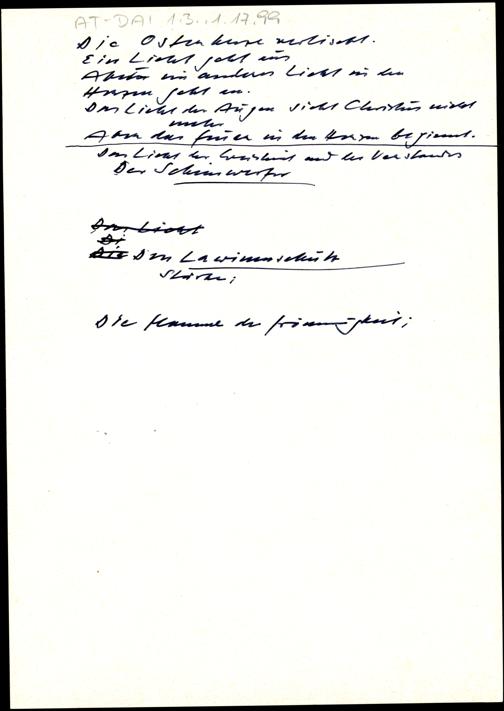 AT-DAI 1.3.1.17.99
Die Osterkerze verlischt.
Ein Licht geht aus
Aber ein anderes Licht in den
Herzen geht an.
Das Licht der Augen sieht Christus nicht
mehr
Aber das Feuer in den Herzen beginnt.
Das Licht der Weisheit und des Verstandes
Der Scheinwerfer
Das Licht
Di
Die Den Lawinenschutt
Stärke;
Die Flamme der Frömmigkeit;